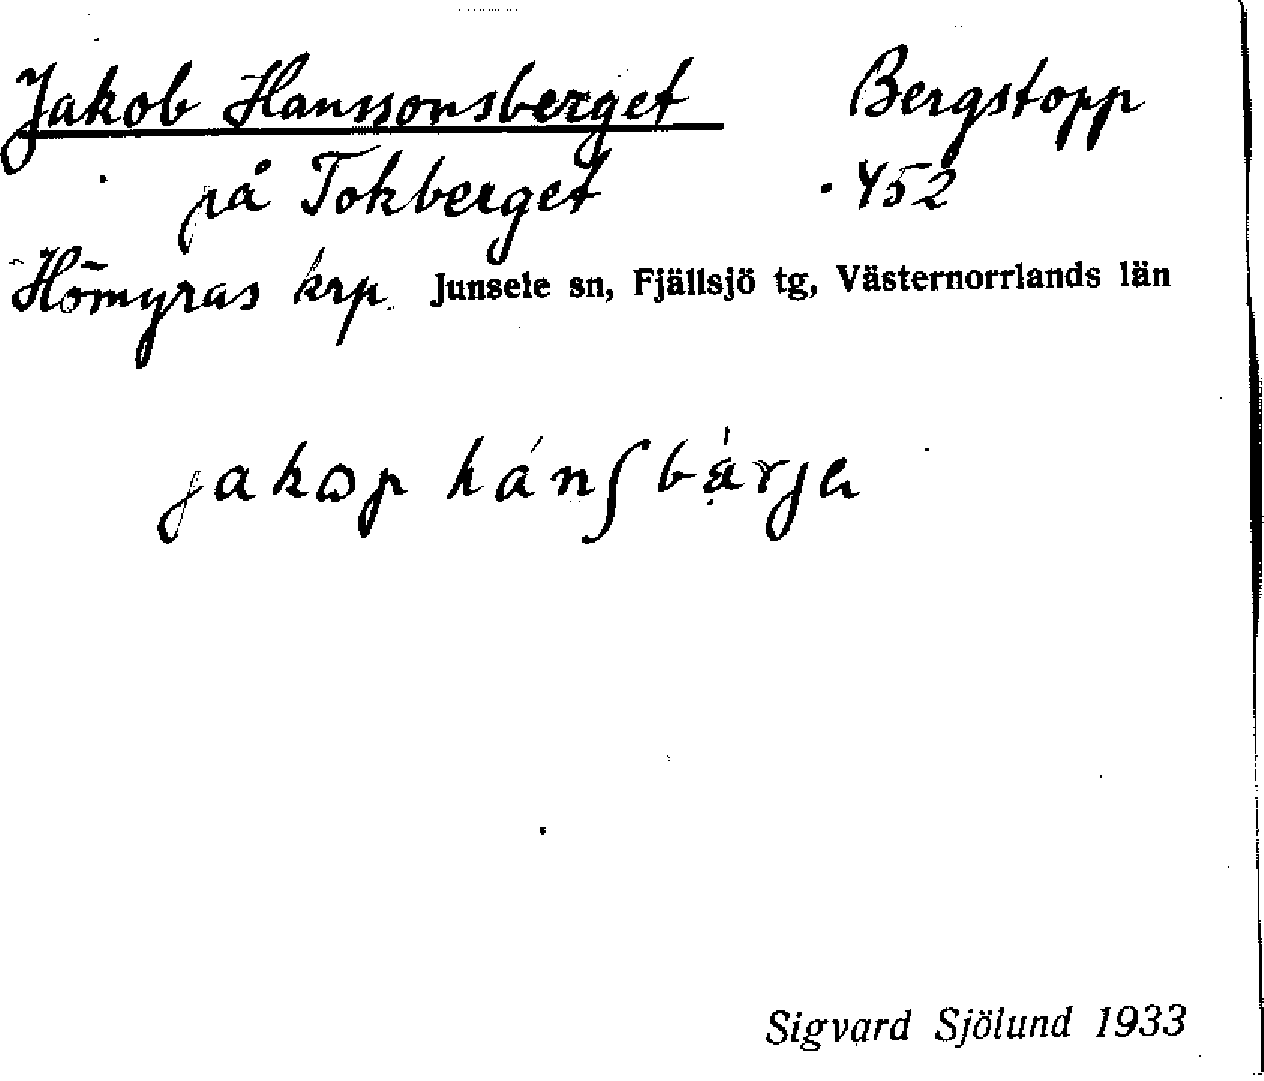 Jakob Hanssonsberget Bergstopp
på Tokberget . 452
Hömyras krp. Junsele sn, Fjällsjö tg, Västernorrlands län
jakɷp hánʃbá̩rjɐ
Sigvard Sjölund 1933